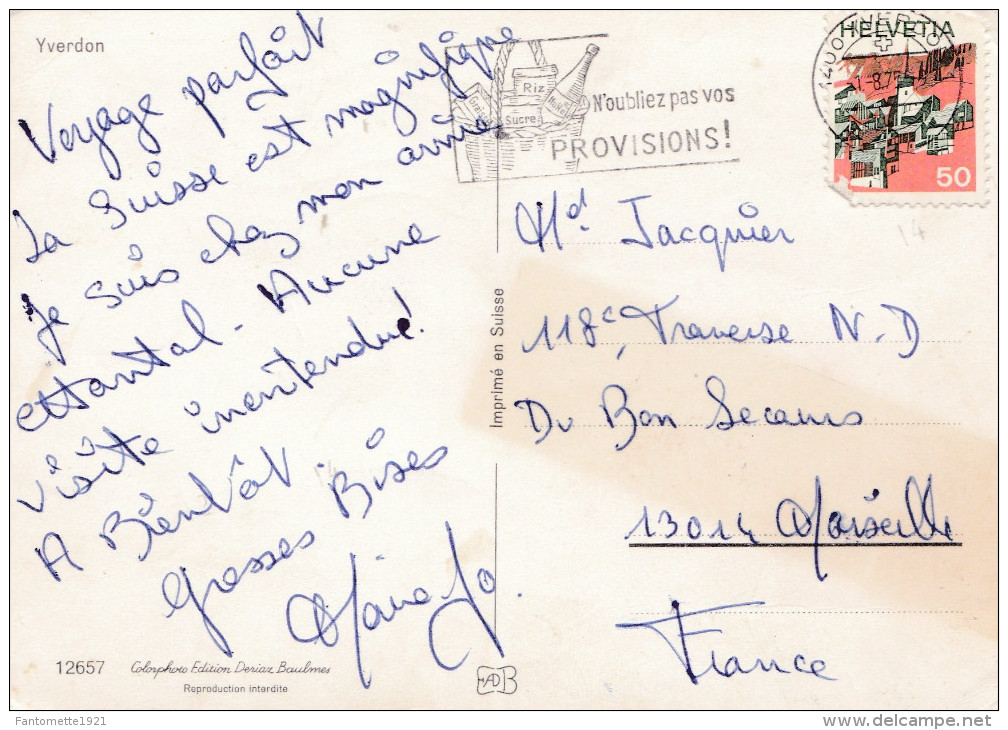 Yverdon
Voyage parfait
La Suisse est magnifique
Je suis chez mon amie
Chantal - Aucune
visite inentendue!
A Bientôt
Grosses Bises
Marie Jo
12657 Colorphoto Edition Deriaz Baulmes
Reproduction interdite
Imprimé en Suisse
Riz
Sucre
N'oubliez pas vos
PROVISIONS!
HELVETIA
50
Md Jacquier
118c, Traverse N.D
Du Bon Secours
13014 Marseille
France
14
Fantomette1921